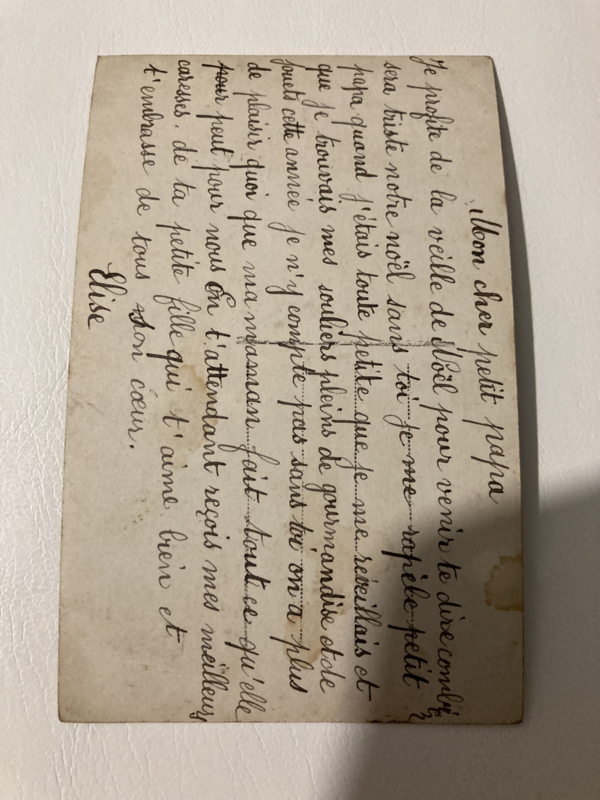 Mon cher petit papa
Je profite de la veille de Noël pour venir te dire combi
sera triste notre noël sans toi je me rapèle petit
papa quand j'étais toute petite que je me réveillais et
que je trouvais mes souliers pleins de gourmandise et de
jouets cette année je n'y compte pas sans toi on a plus
de plaisir quoi que ma maman fait tout ce qu'elle
pour peut pour nous En t'attendant reçois mes meilleurs
caresses. de ta petite fille qui t'aime bien et
t'embrasse de tous son cœur.
Elise